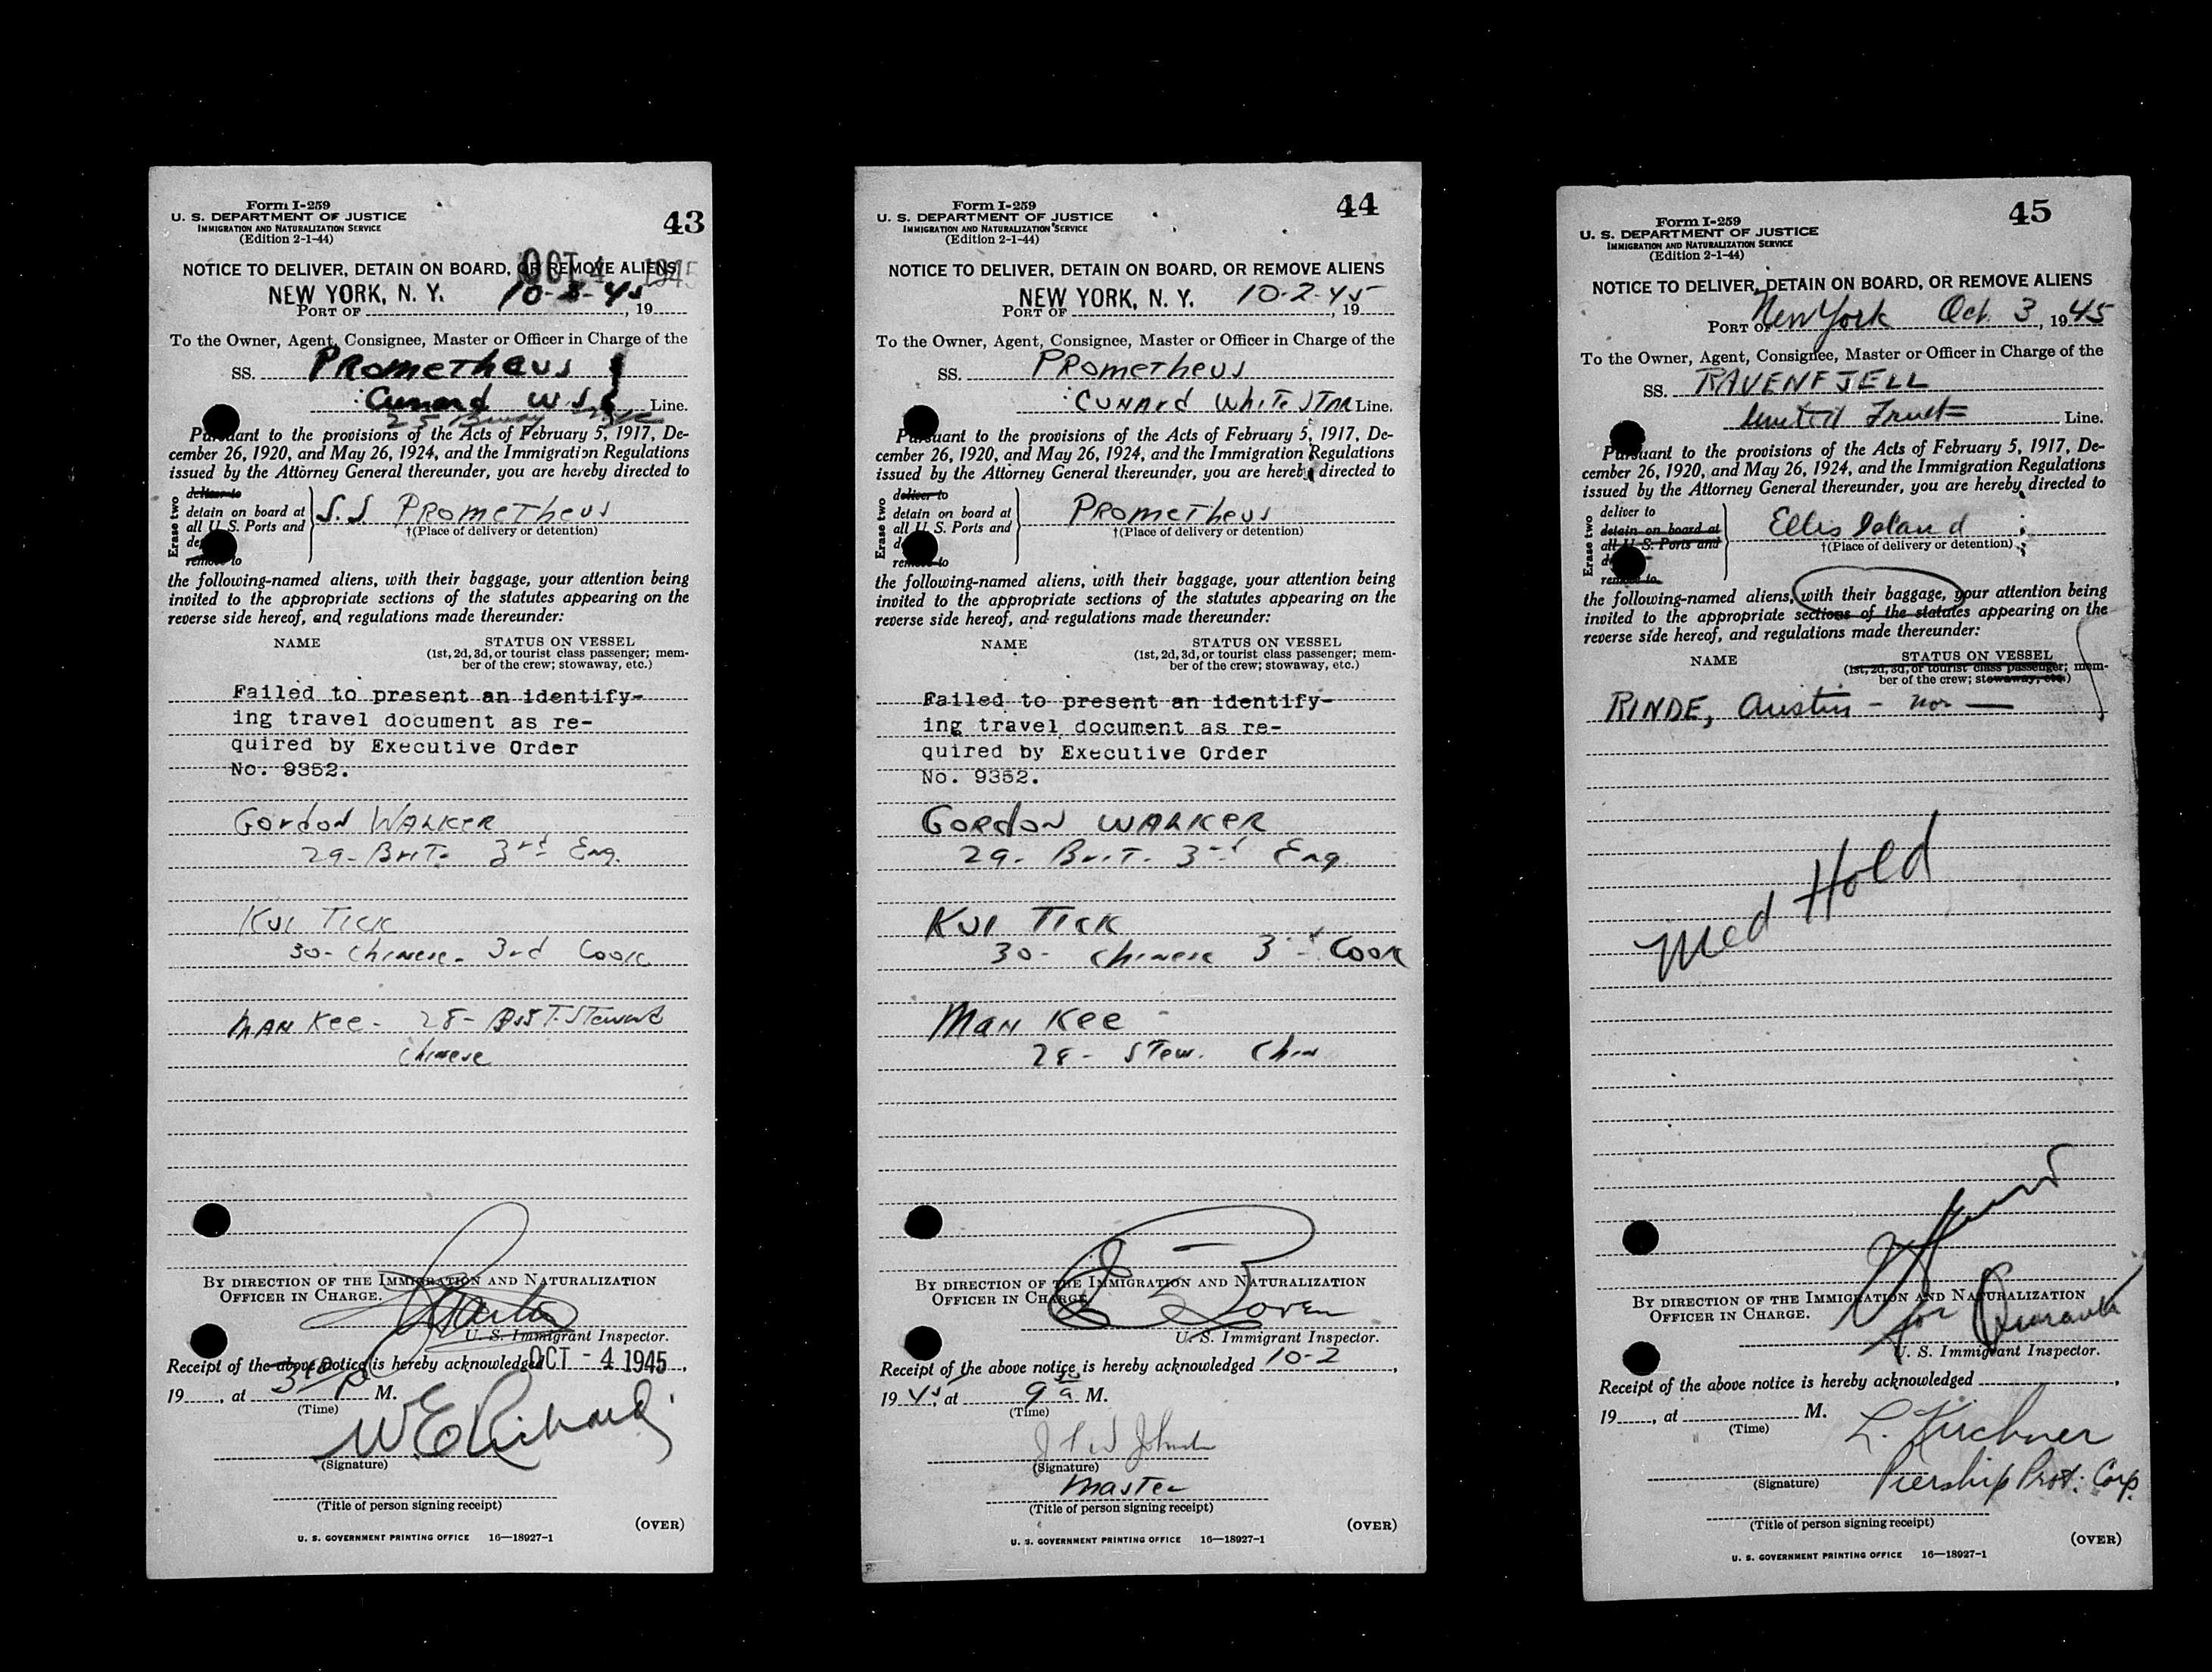 Form I-259
U. S. DEPARTMENT OF JUSTICE
IMMIGRATION AND NATURALIZATION SERVICE
(Edition 2-1-44)
43
NOTICE TO DELIVER, DETAIN ON BOARD, OR REMOVE ALIENS
OCT 4 1945
NEW YORK, N. Y. 10- -45
PORT OF , 19
To the Owner, Agent, Consignee, Master or Officer in Charge of the
SS. PROMETHEUS
Cunard W S Line.
25 Bway NYC
Pursuant to the provisions of the Acts of February 5, 1917, De-
cember 26, 1920, and May 26, 1924, and the Immigration Regulations
issued by the Attorney General thereunder, you are hereby directed to
Erase two
deliver to
detain on board at
all U. S. Ports and
de
remove to
S.S PROMETHEUS
†(Place of delivery or detention)
the following-named aliens, with their baggage, your attention being
invited to the appropriate sections of the statutes appearing on the
reverse side hereof, and regulations made thereunder:
NAME STATUS ON VESSEL
(1st, 2d, 3d, or tourist class passenger; mem-
ber of the crew; stowaway, etc.)
Failed to present an identify-
ing travel document as re-
quired by Executive Order
No. 9352.
GORDON WALKER
29- BRIT- 3rd Eng.
KUI TICK
30- Chinese- 3rd Cook
MAN Kee - 28- ASST. Steward
Chinese
BY DIRECTION OF THE IMMIGRATION AND NATURALIZATION
OFFICER IN CHARGE.
U. S. Immigrant Inspector.
Receipt of the above notice is hereby acknowledged OCT - 4 1945,
19 , at 3 P M.
(Time)
W E Richards
(Signature)
(Title of person signing receipt)
(OVER)
U. S. GOVERNMENT PRINTING OFFICE 16—18927-1
Form I-259
U. S. DEPARTMENT OF JUSTICE
IMMIGRATION AND NATURALIZATION SERVICE
(Edition 2-1-44)
44
NOTICE TO DELIVER, DETAIN ON BOARD, OR REMOVE ALIENS
NEW YORK, N. Y. 10-2-45
PORT OF , 19
To the Owner, Agent, Consignee, Master or Officer in Charge of the
SS. PROMETHEUS
CUNARD WHITE STAR Line.
Pursuant to the provisions of the Acts of February 5, 1917, De-
cember 26, 1920, and May 26, 1924, and the Immigration Regulations
issued by the Attorney General thereunder, you are hereby directed to
Erase two
deliver to
detain on board at
all U. S. Ports and
d
remove to
PROMETHEUS
†(Place of delivery or detention)
the following-named aliens, with their baggage, your attention being
invited to the appropriate sections of the statutes appearing on the
reverse side hereof, and regulations made thereunder:
NAME STATUS ON VESSEL
(1st, 2d, 3d, or tourist class passenger; mem-
ber of the crew; stowaway, etc.)
Failed to present an identify-
ing travel document as re-
quired by Executive Order
No. 9352.
GORDON WALKER
29- BRIT- 3rd Eng
KUI TICK
30- Chinese 3rd Cook
MAN Kee -
28- STEW. Chin
BY DIRECTION OF THE IMMIGRATION AND NATURALIZATION
OFFICER IN CHARGE.
U. S. Immigrant Inspector.
Receipt of the above notice is hereby acknowledged 10-2 ,
19 45, at 9 30 a M.
(Time)
(Signature)
Master
(Title of person signing receipt)
(OVER)
U. S. GOVERNMENT PRINTING OFFICE 16—18927-1
Form I-259
U. S. DEPARTMENT OF JUSTICE
IMMIGRATION AND NATURALIZATION SERVICE
(Edition 2-1-44)
45
NOTICE TO DELIVER, DETAIN ON BOARD, OR REMOVE ALIENS
PORT OF New York Oct 3, 1945
To the Owner, Agent, Consignee, Master or Officer in Charge of the
SS. RAVENFJELL
United Fruit Line.
Pursuant to the provisions of the Acts of February 5, 1917, De-
cember 26, 1920, and May 26, 1924, and the Immigration Regulations
issued by the Attorney General thereunder, you are hereby directed to
Erase two
deliver to
detain on board at
all U. S. Ports and
d
remove to
Ellis Island
†(Place of delivery or detention)
the following-named aliens, with their baggage, your attention being
invited to the appropriate sections of the statutes appearing on the
reverse side hereof, and regulations made thereunder:
NAME STATUS ON VESSEL
(1st, 2d, 3d, or tourist class passenger; mem-
ber of the crew; stowaway, etc.)
RINDE, Austin - Nor —
Med Hold
BY DIRECTION OF THE IMMIGRATION AND NATURALIZATION
OFFICER IN CHARGE.
for
U. S. Immigrant Inspector.
Receipt of the above notice is hereby acknowledged ,
19 , at M.
(Time)
L. Kirchner
(Signature) Piership Prot. Corp.
(Title of person signing receipt)
(OVER)
U. S. GOVERNMENT PRINTING OFFICE 16—18927-1